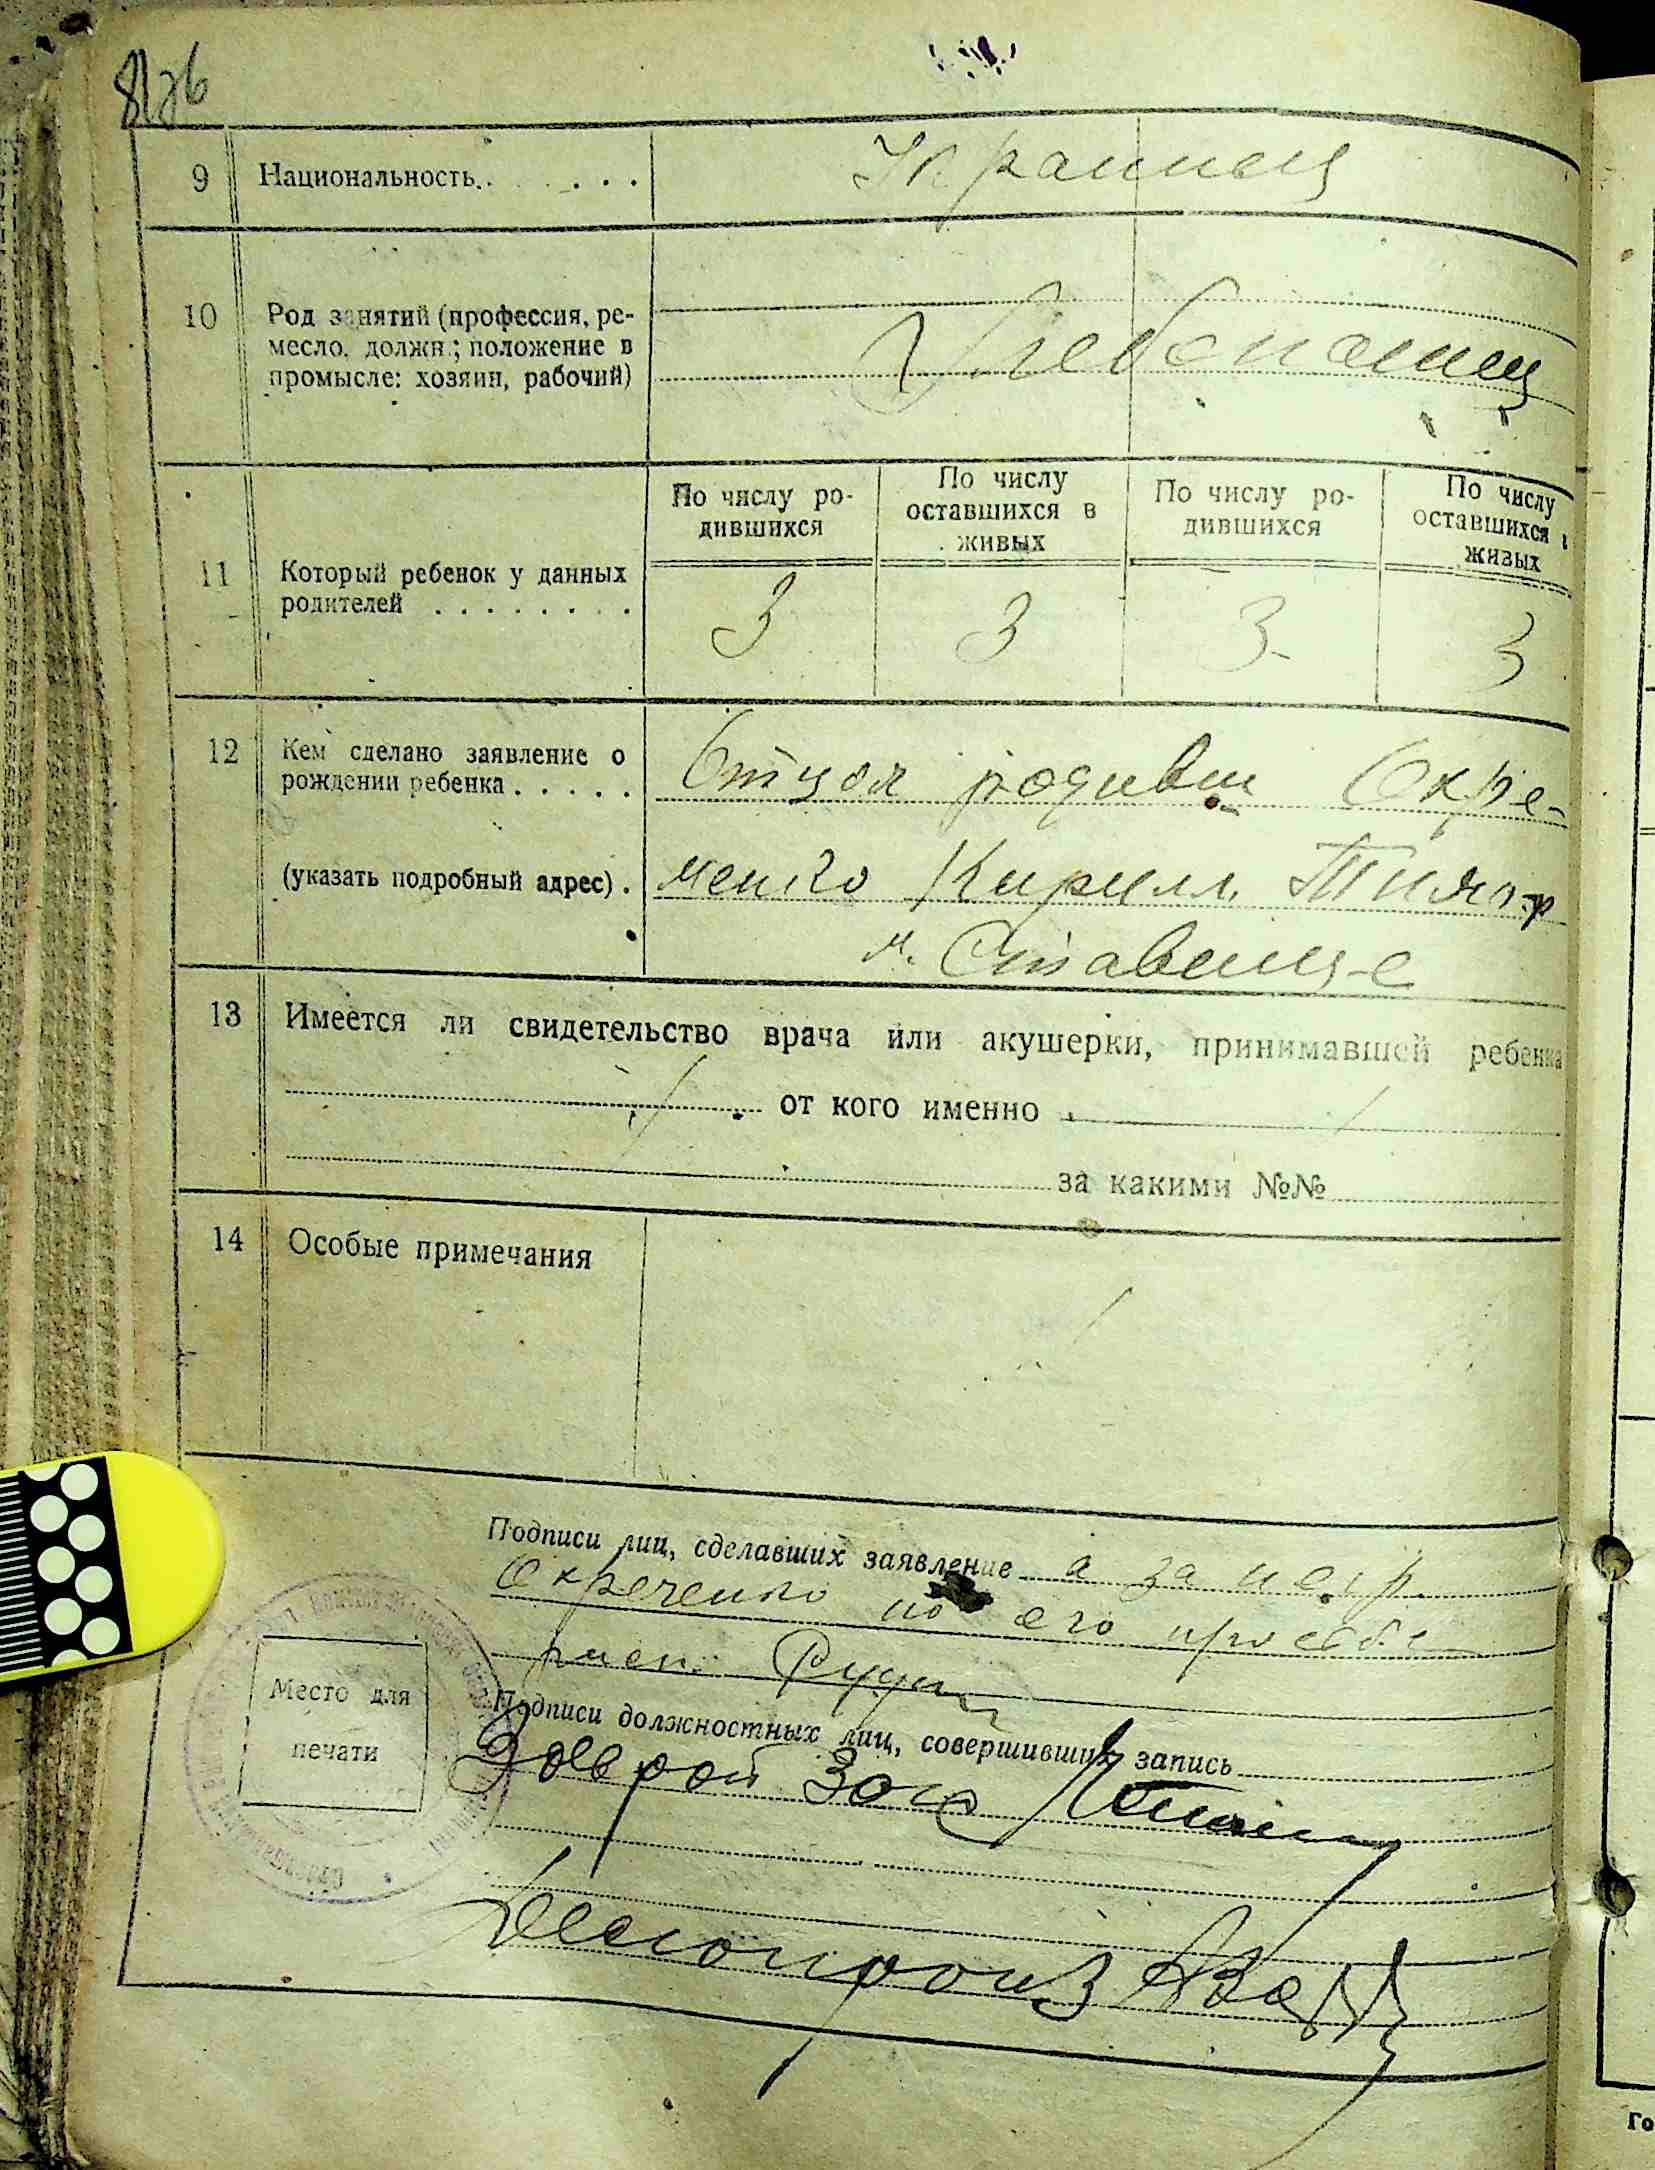 9 Национальность. . . . . Украинец
10 Род занятий (профессия, ре-
месло, должн.; положение в
промысле: хозяин, рабочий)
Хлебопашец
По числу ро-
дившихся
По числу
оставшихся в
живых
По числу ро-
дившихся
По числу
оставшихся в
живых
11 Который ребенок у данных
родителей . . . . . . . .
3 3 3 3
12 Кем сделано заявление о
рождении ребенка . . . . .
(указать подробный адрес) .
Отцом родивш Охре-
менко Кирилл. Тимоф
м. Ставище
13 Имеется ли свидетельство врача или акушерки, принимавшей ребенка
от кого именно
за какими №№
14 Особые примечания
Подписи лиц, сделавших заявление а за негр.
по его просьбе
расп.
Место для
печати
Подписи должностных лиц, совершивших запись
Делопроиз
Го